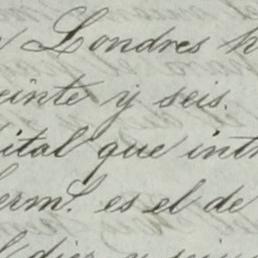 Londres h
einte y seis.
ital que intr
erm.l es el de
l diez y